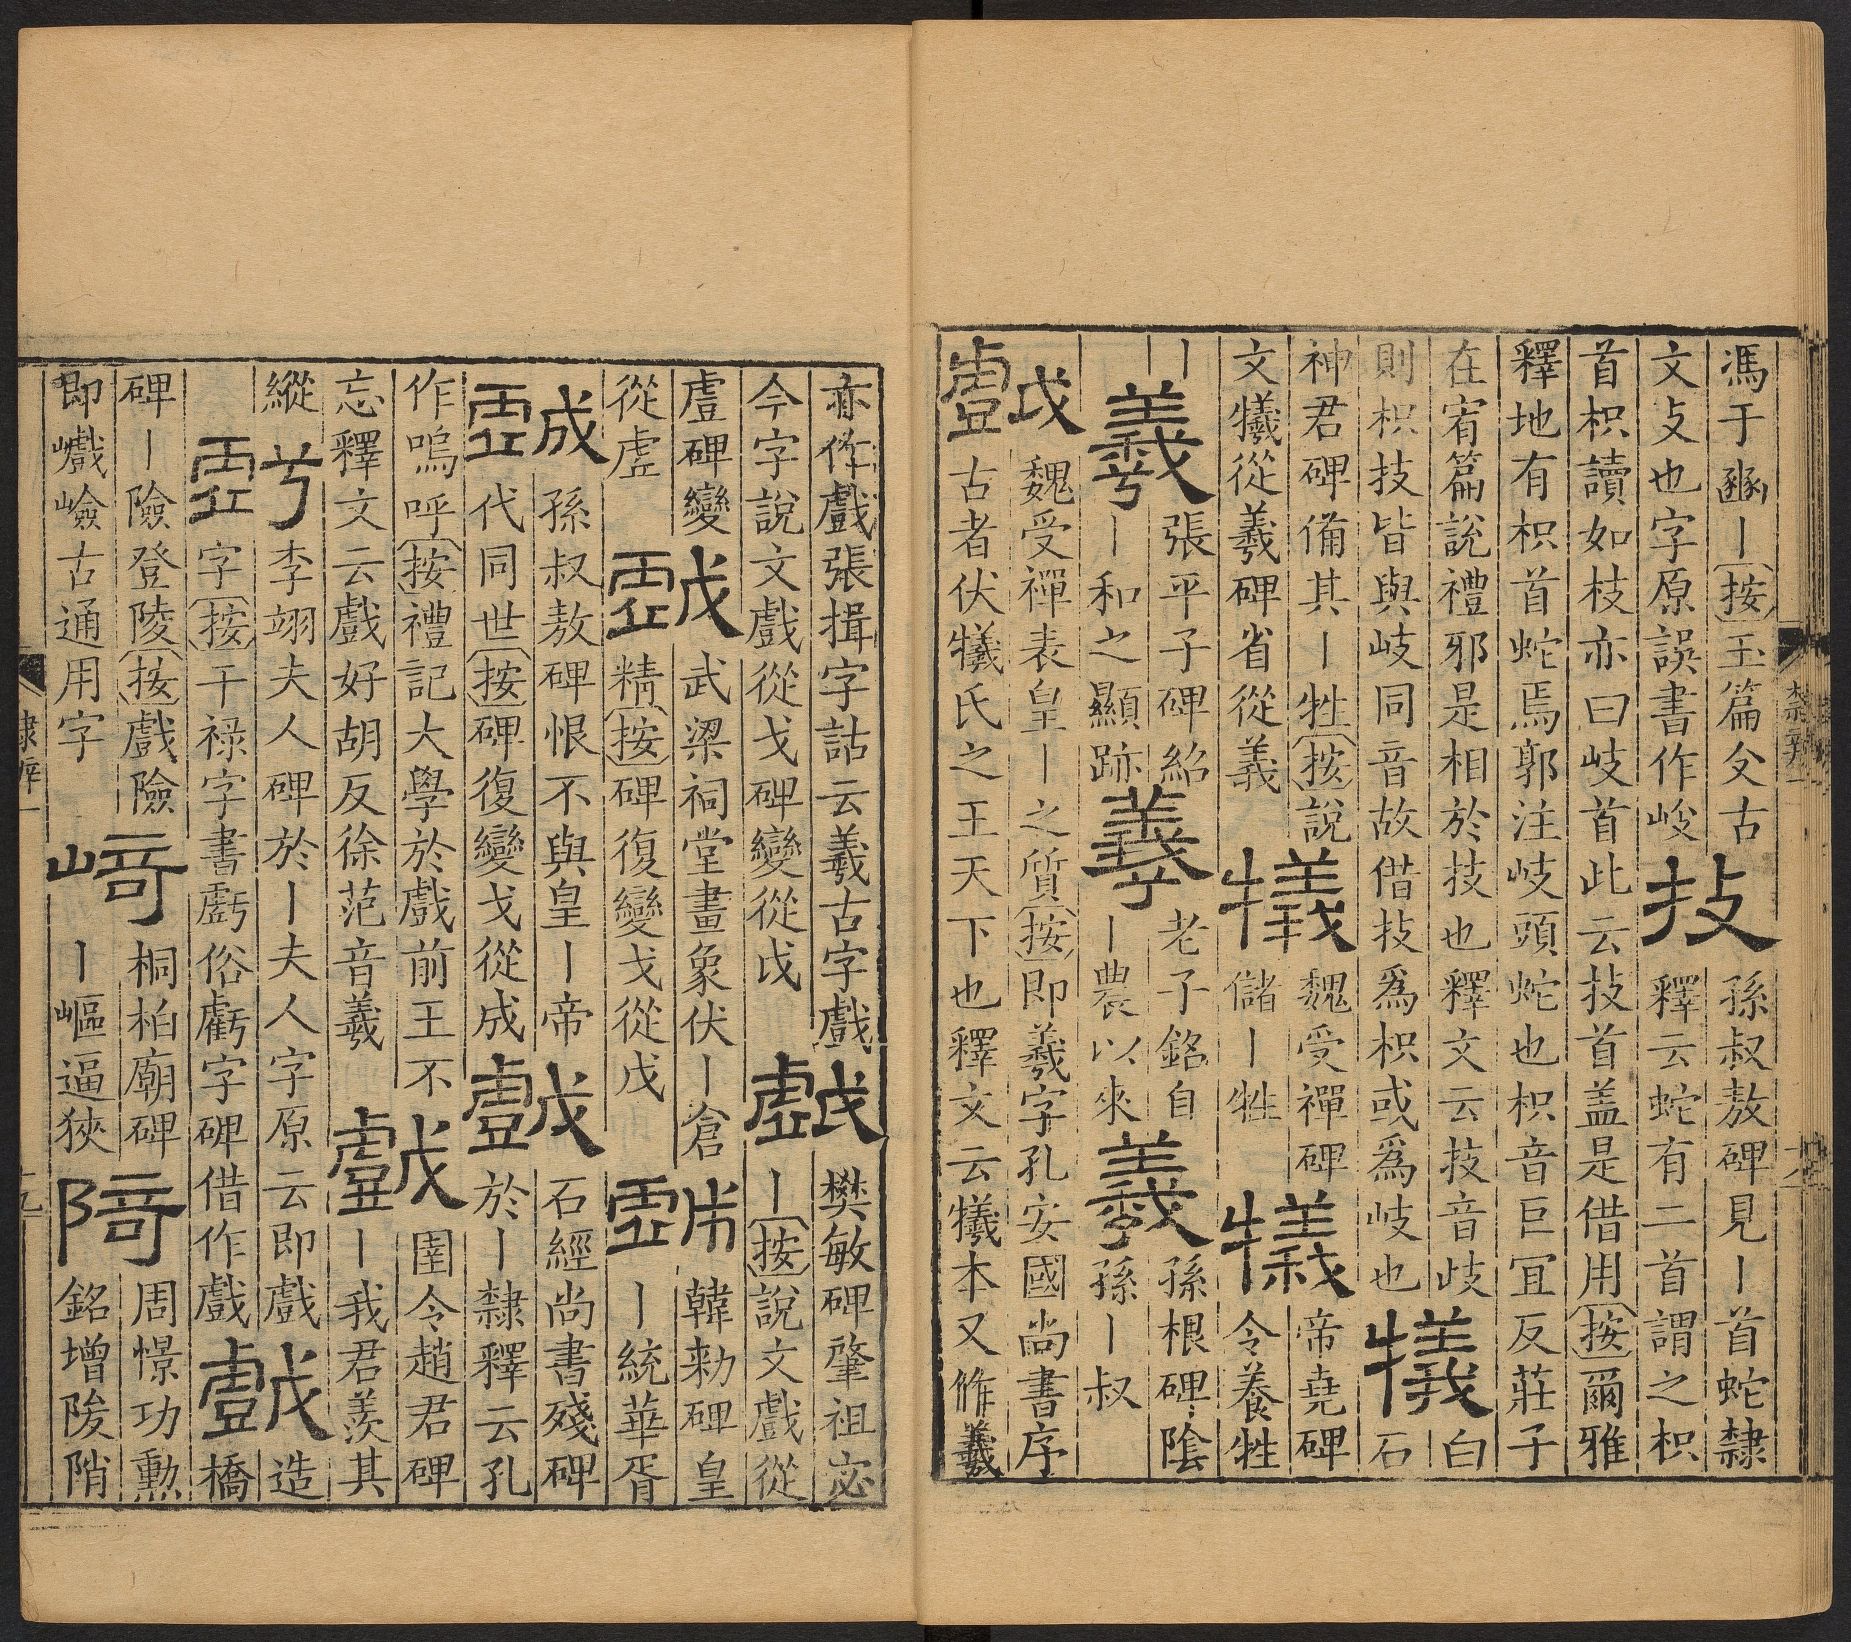 馮于豳丨按玉篇攴古
文攴也字原誤書作峧
技
孫叔敖碑見丨首蛇隸
釋云蛇有二首謂之枳
首枳讀如枝亦曰歧首此云技首盖是借用按爾雅
釋地有枳首蛇焉郭注歧頭蛇也枳音巨宜反莊子
在宥篇說禮邪是相於技也釋文云技音歧
則枳技皆與歧同音故借技爲枳或爲歧也
犧
白
石
神君碑備其丨牲按說
文犧從羲碑省從義
犧
魏受禪碑
儲丨牲
犧
帝堯碑
令養牲
丨
羲
張平子碑紹
丨和之顯跡
羲
老子銘自
丨農以來
羲
孫根碑陰
孫丨叔
戲
魏受禪表皇丨之質按即羲字孔安國尚書序
古者伏犧氏之王天下也釋文云犧本又作羲
亦作戲張揖字詁云羲古字戲
今字說文戲從戈碑變從戉
戲
樊敏碑肇祖宓
丨按說文戲從
䖒碑變
從虗
戲
武梁祠堂畫象伏丨倉
精按碑復變戈從戊
戲
韓勑碑皇
丨統華胥
戲
孫叔敖碑恨不與皇丨帝
代同世按碑復變戈從成
戲
石經尚書殘碑
於丨隸釋云孔
作嗚呼按禮記大學於戲前王不
忘釋文云戲好胡反徐范音羲
戲
圉令趙君碑
丨我君羨其
縱
虧
李翊夫人碑於丨夫人字原云即戲
字按干祿字書𧇾俗虧字碑借作戲
戲
造
橋
碑丨險登陵按戲險
即巇嶮古通用字
崎
桐柏廟碑
丨嶇逼狹
陭
周憬功勲
銘增陖陗
隸辨一